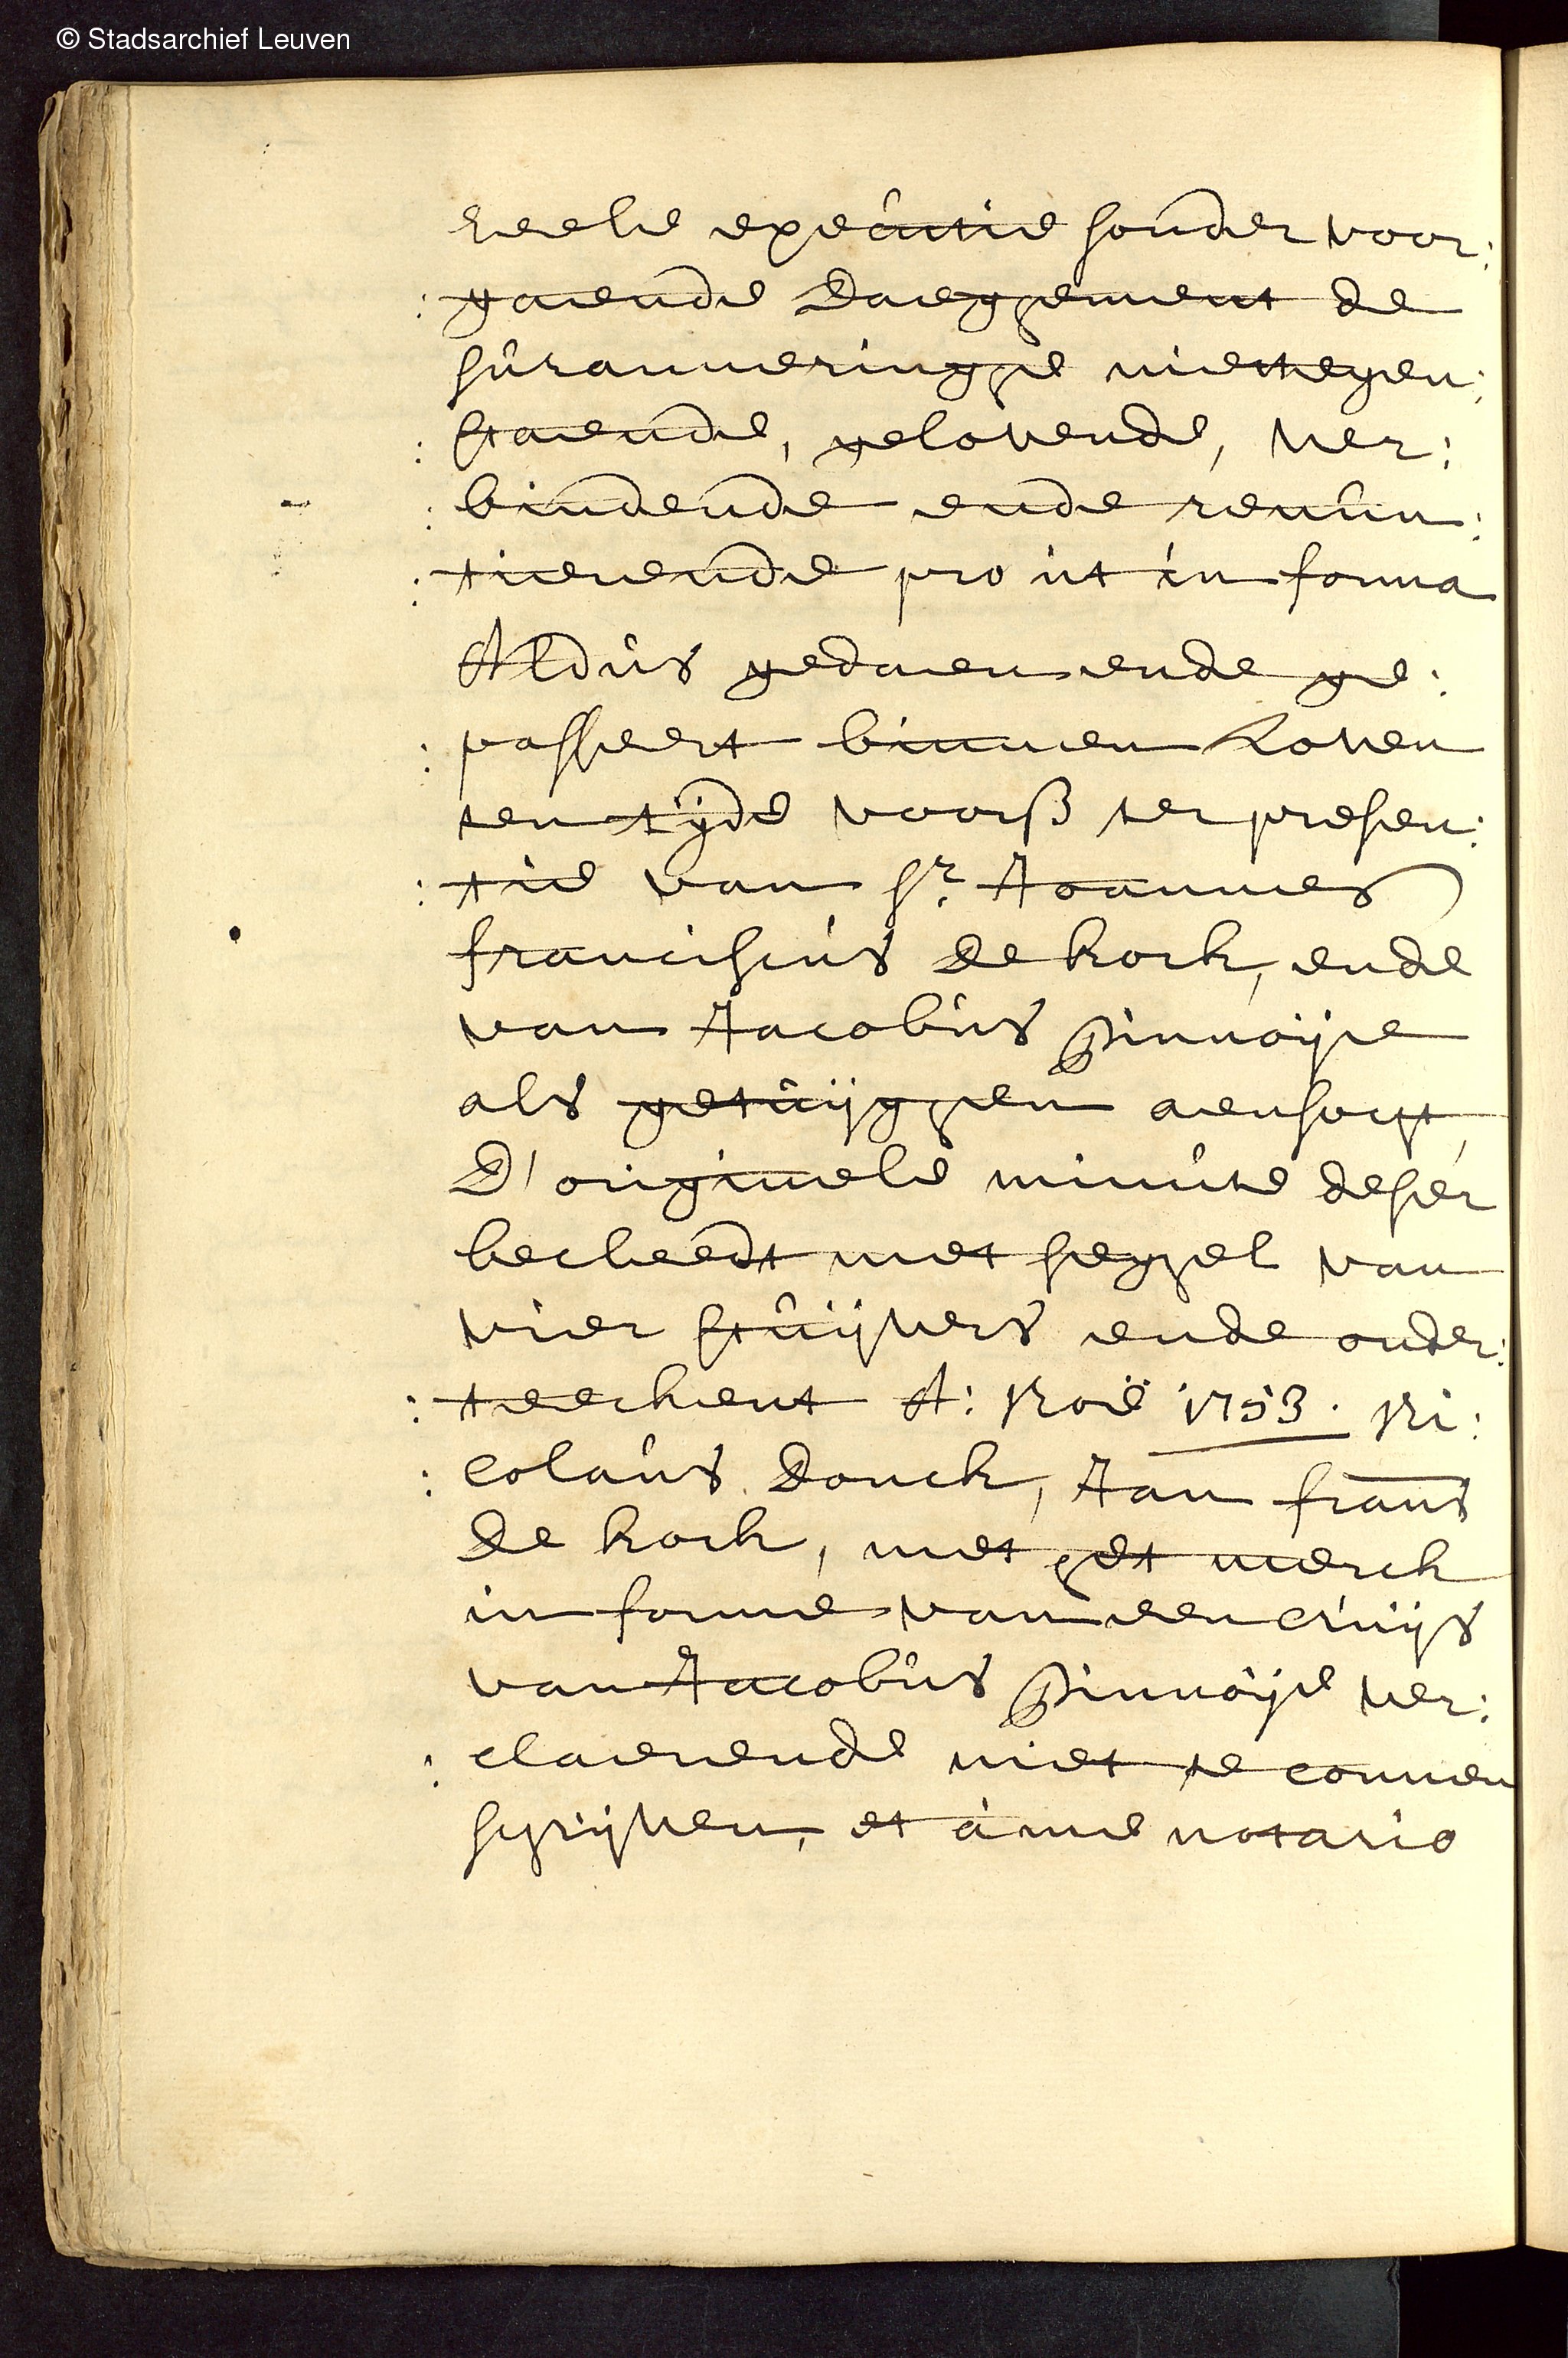 © Stadsarchief Leuven
reele executie sonder voor:
:gaende daeghement de
suranneringhe niettegen:
:staende, gelovende, ver:
:bindende ende renun:
:tierende pro ut in forma
Aldus gedaen ende ge:
:passeert binnen Loven
ten tijde voorß ter presen:
:tie van Sr. Joannes
franciscus De kock, ende
van Jacobus Pinnoije
als getuijghen aensocht
D'originele minute deser
becleedt met seghel van
vier stuijvers ende onder:
:teeckent A: Noë 1753. Ni:
:colaus Donck, Jan frans
De kock, met het merck
in forme van een cruijs
van Jacobus Pinnoije ver:
:claerende niet te connen
schrijven, et à me notario